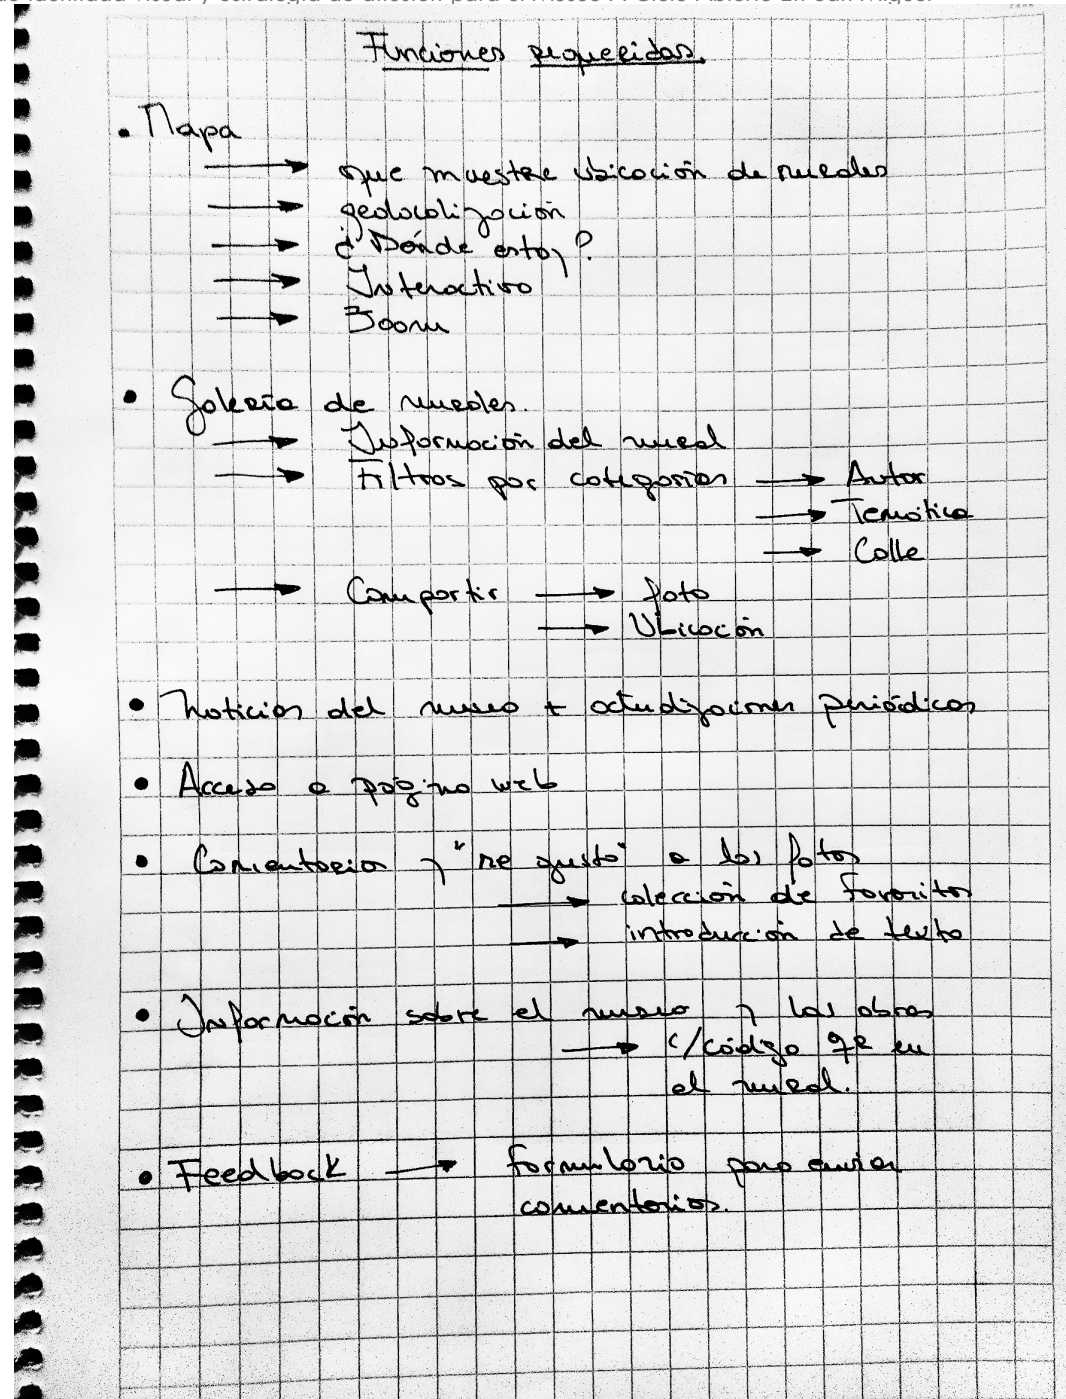 de identidad visual y estrategia de difusión para el Museo A Cielo Abierto En San Miguel
Funciones requeridas.
• Mapa
→ que muestre ubicación de murales
→ geolocalización
→ ¿Dónde estoy?
→ Interactivo
→ Zoom
• Galería de murales.
→ Información del mural
→ Filtros por categorías → Autor
→ Temática
→ Calle
→ Compartir → foto
→ Ubicación
• Noticias del museo + actualizaciones periódicas
• Acceso a página web
• Comentarios y "me gusta" a las fotos
→ colección de favoritos
→ introducción de texto
• Información sobre el museo y las obras
→ c/código QR en
el mural.
• Feedback → formulario para enviar
comentarios.